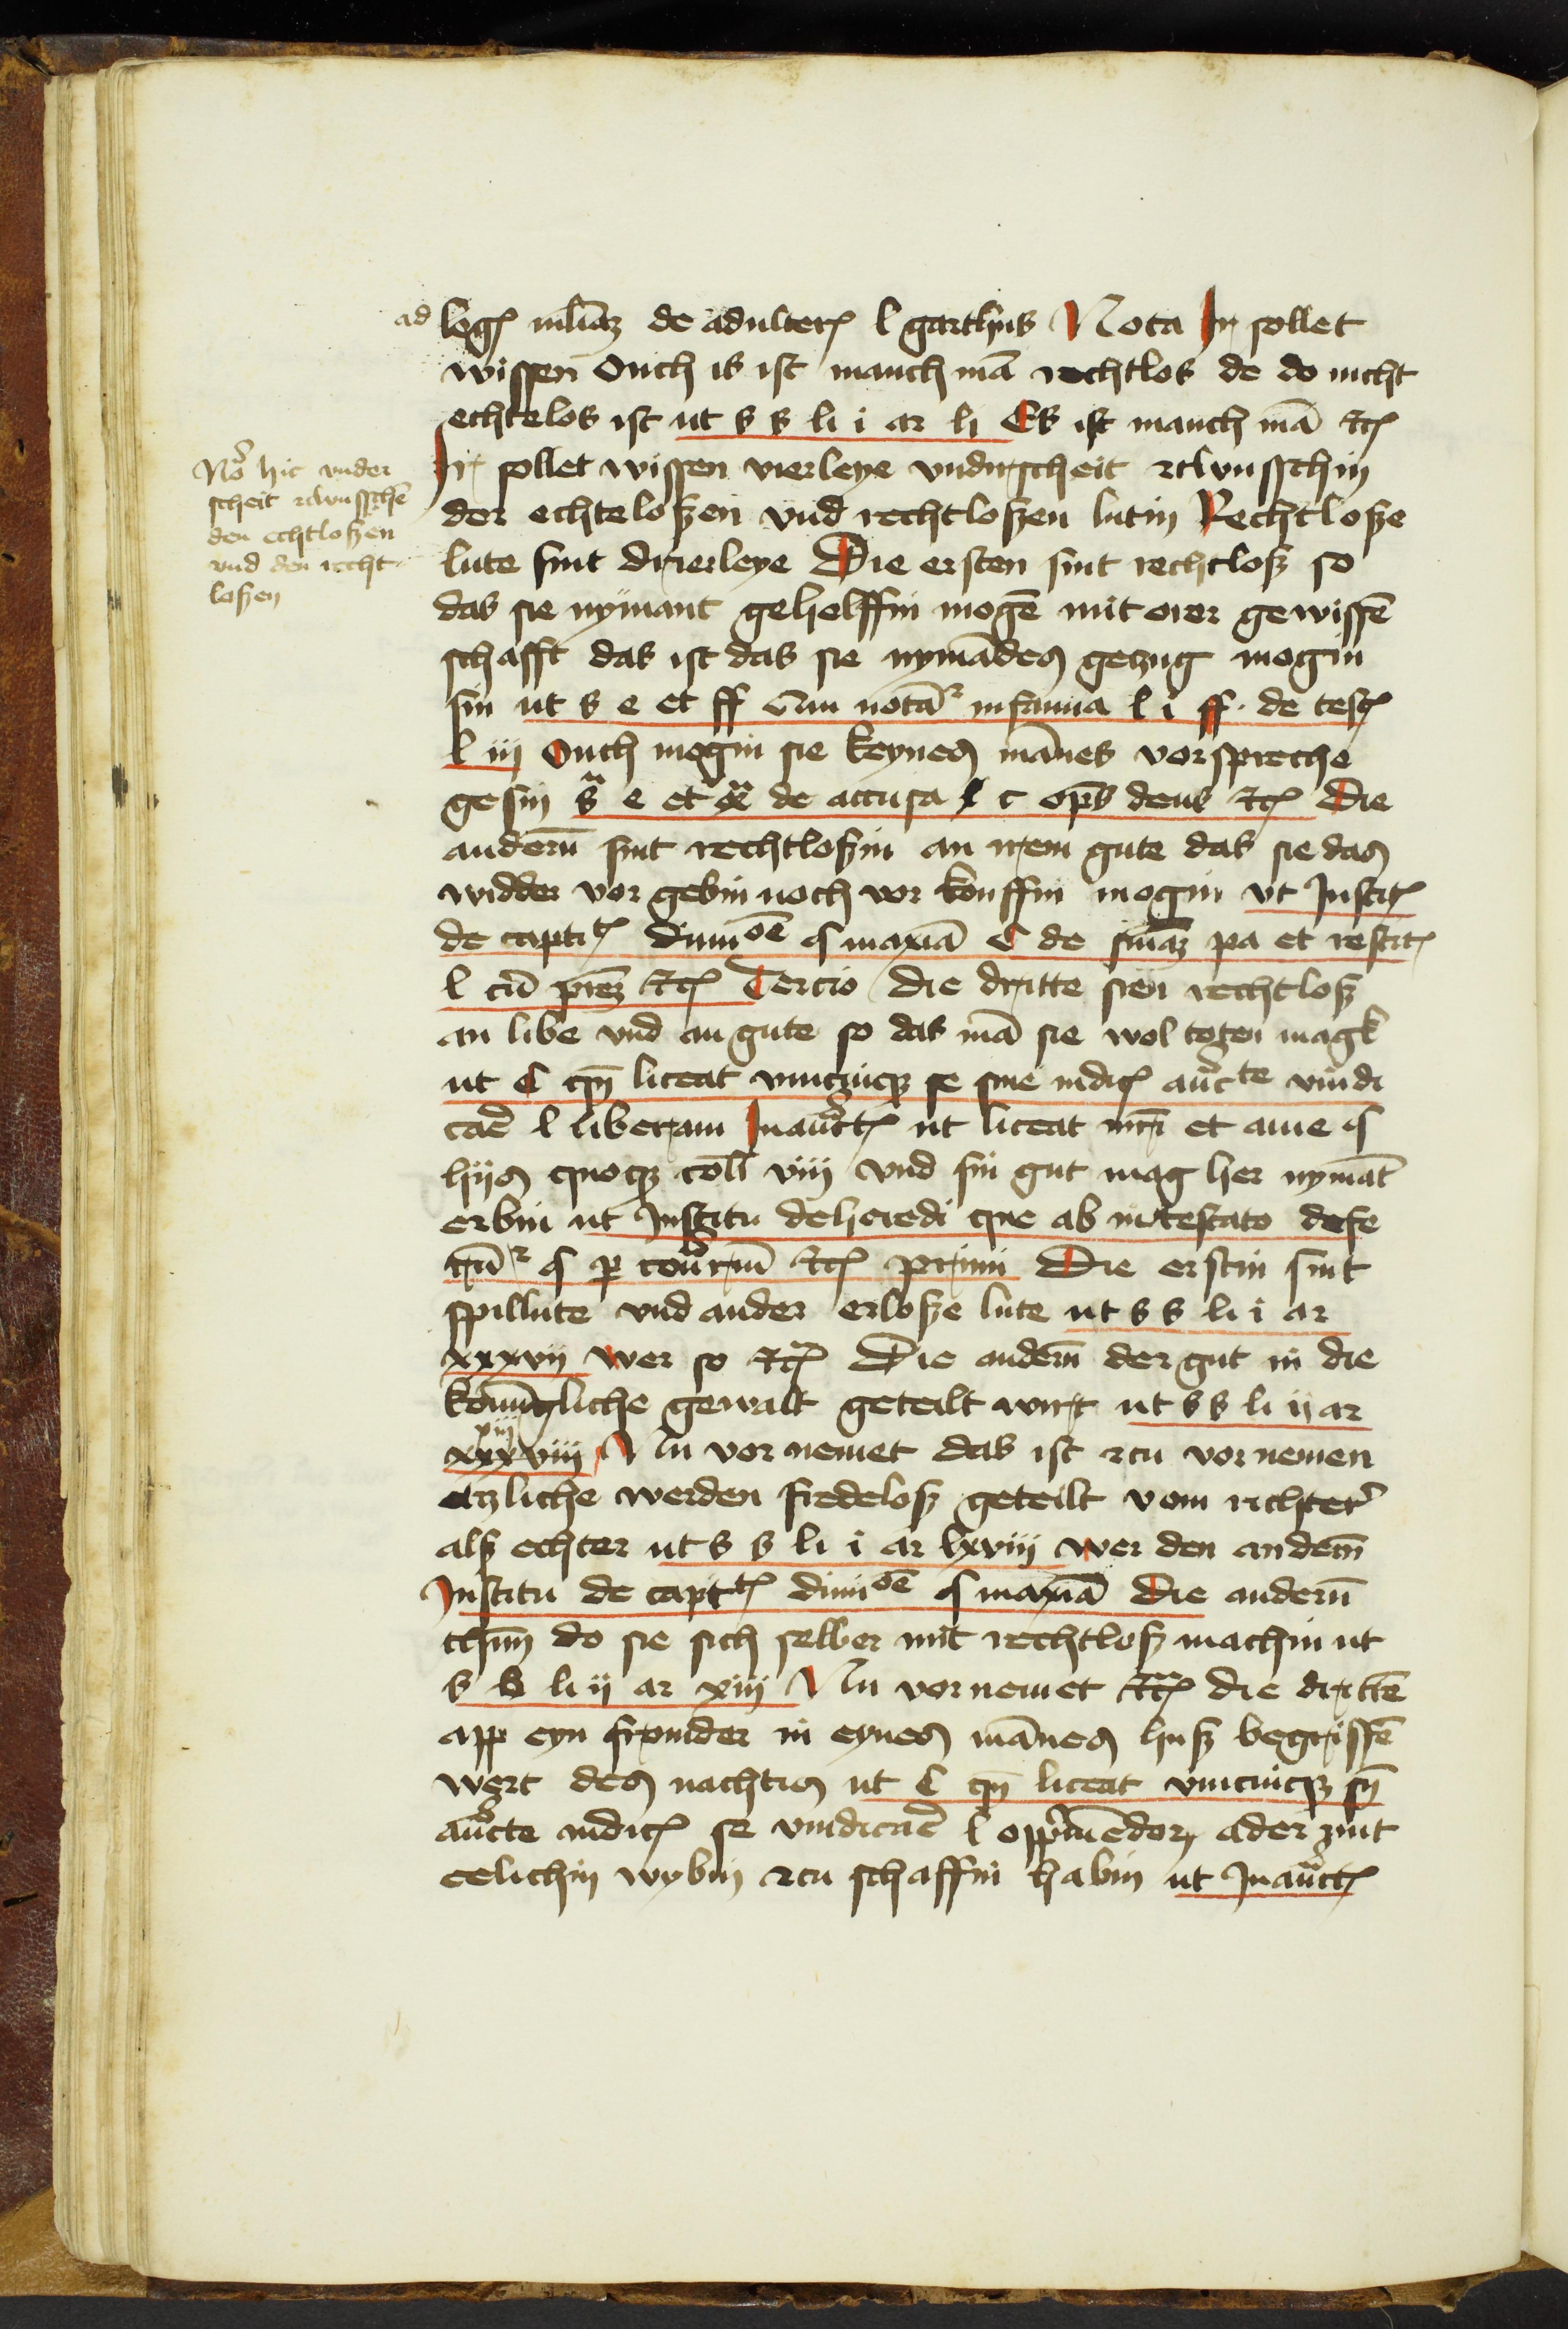 ad legꝭ iuliaꝫ de adulterꝭ l gracchus Nota Ir sollet
wissen Ouch is ist manch mā rechtlos de do nicht
echtelos ist ut s s li i ar li Es ist manch mā ꝛcꝭ
Ir sollet wissen vierleye vndirscheit zcwusschin
der echteloßen vnd rechtloßen lutin Rechtloße
lute sint drierleye Die ersten sint rechtloß so
das sie nymant gehelffin mogē mit orer gewissē
schafft das ist das sie nymādes gezug mogin
sin ut s e et ff notāʳ infamia l i ff de testꝭ
l iij Ouch mogin sie keynes mānes vorspreche
gesin e et de accusa l c deus ꝛcꝭ Die
anderū sint rechtloßin an irem gute das sie das
widder vor gebin noch vor kouffin mogin vt Institꝭ
de capitꝭ dimiᵒē § maxiā C de sniaꝫ pa et restitꝭ
l cū ꝛcꝭ Tercio die dritte sien rechtloß
an libe vnd an gute so das mā sie wol toten magk
ut C qn̄ liceat vnicuiqꝫ se sine iudicꝭ auc̄te vindi
caē l liberam Inauctꝭ ut liceat mr̄i et auie §
hijs quoqꝫ coll viij vnd sin gut mag her nymāt
erbin ut Institu deheredi que ab intestato defe
rūʳ § ꝑ ꝛcꝭ primi Die erstin sint
spillute vnd ander erloße lute ut s s li i ar
xxxvij wer so ꝛcꝭ Die anderū der gut in die
konningliche gewalt geteilt wirt ut s s li ij ar
xxxviij xiij Nu vor nemet das ist zcu vor nemen
etzliche werden fredeloß geteilt vom richter
alß echter ut s s li i ar lxviij wer den anderm̄
Institu de capitꝭ dimiᵒē § maxiā Die anderū
thun do sie sich selber mit rechtloß machin ut
s s li ij ar xiij Nu vor nemet ꝛcꝭ die drittē
app eyn fromder in eynes mānes huß begriffē
wert des nachtis ut C qn̄ liceat vnicuiqꝫ sn̄
auc̄te iudicꝭ se vindicaē l opp̄mēdoꝝ ader mit
eelichin wybin zcu schaffin habin ut Inauctꝭ
No hic vnder
scheit zcwusschē
den echtloßen
vnd den recht
loßen